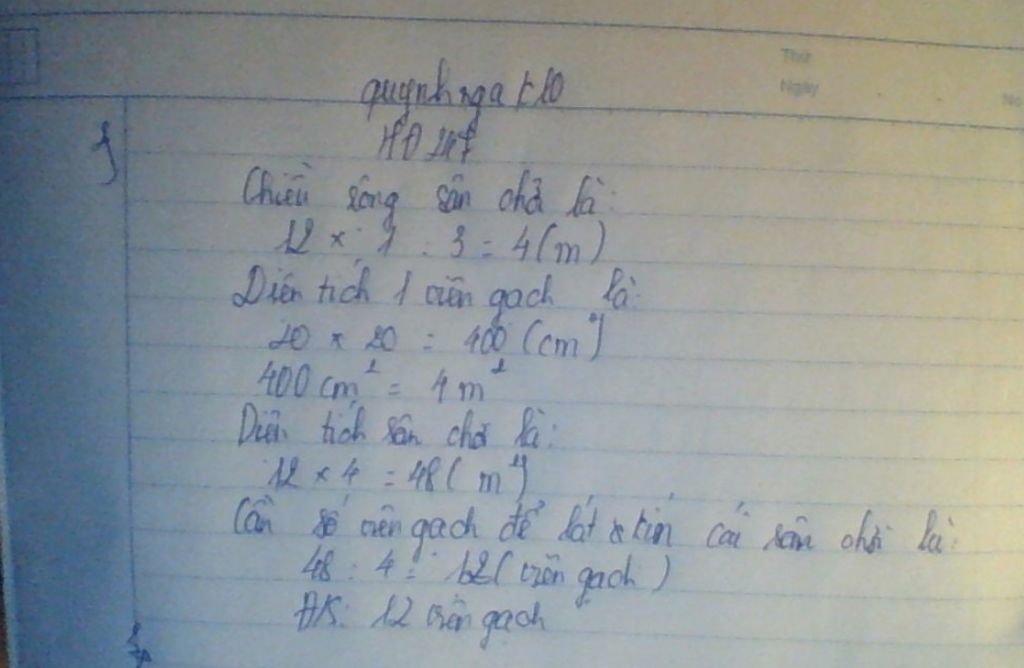 Thứ
Ngày
No
quynh nga t10
HĐ 247
Chiều rông sân chơi là:
12 × 1 : 3 = 4 (m)
Diên tích 1 viên gạch là:
20 × 20 = 400 (cm²)
400 cm² = 4 m²
Diên tích sân chơi là:
12 × 4 = 48 (m²)
Cần số viên gạch để lát kín cái sân chơi là:
48 : 4 = 12 (viên gạch)
ĐS: 12 viên gạch